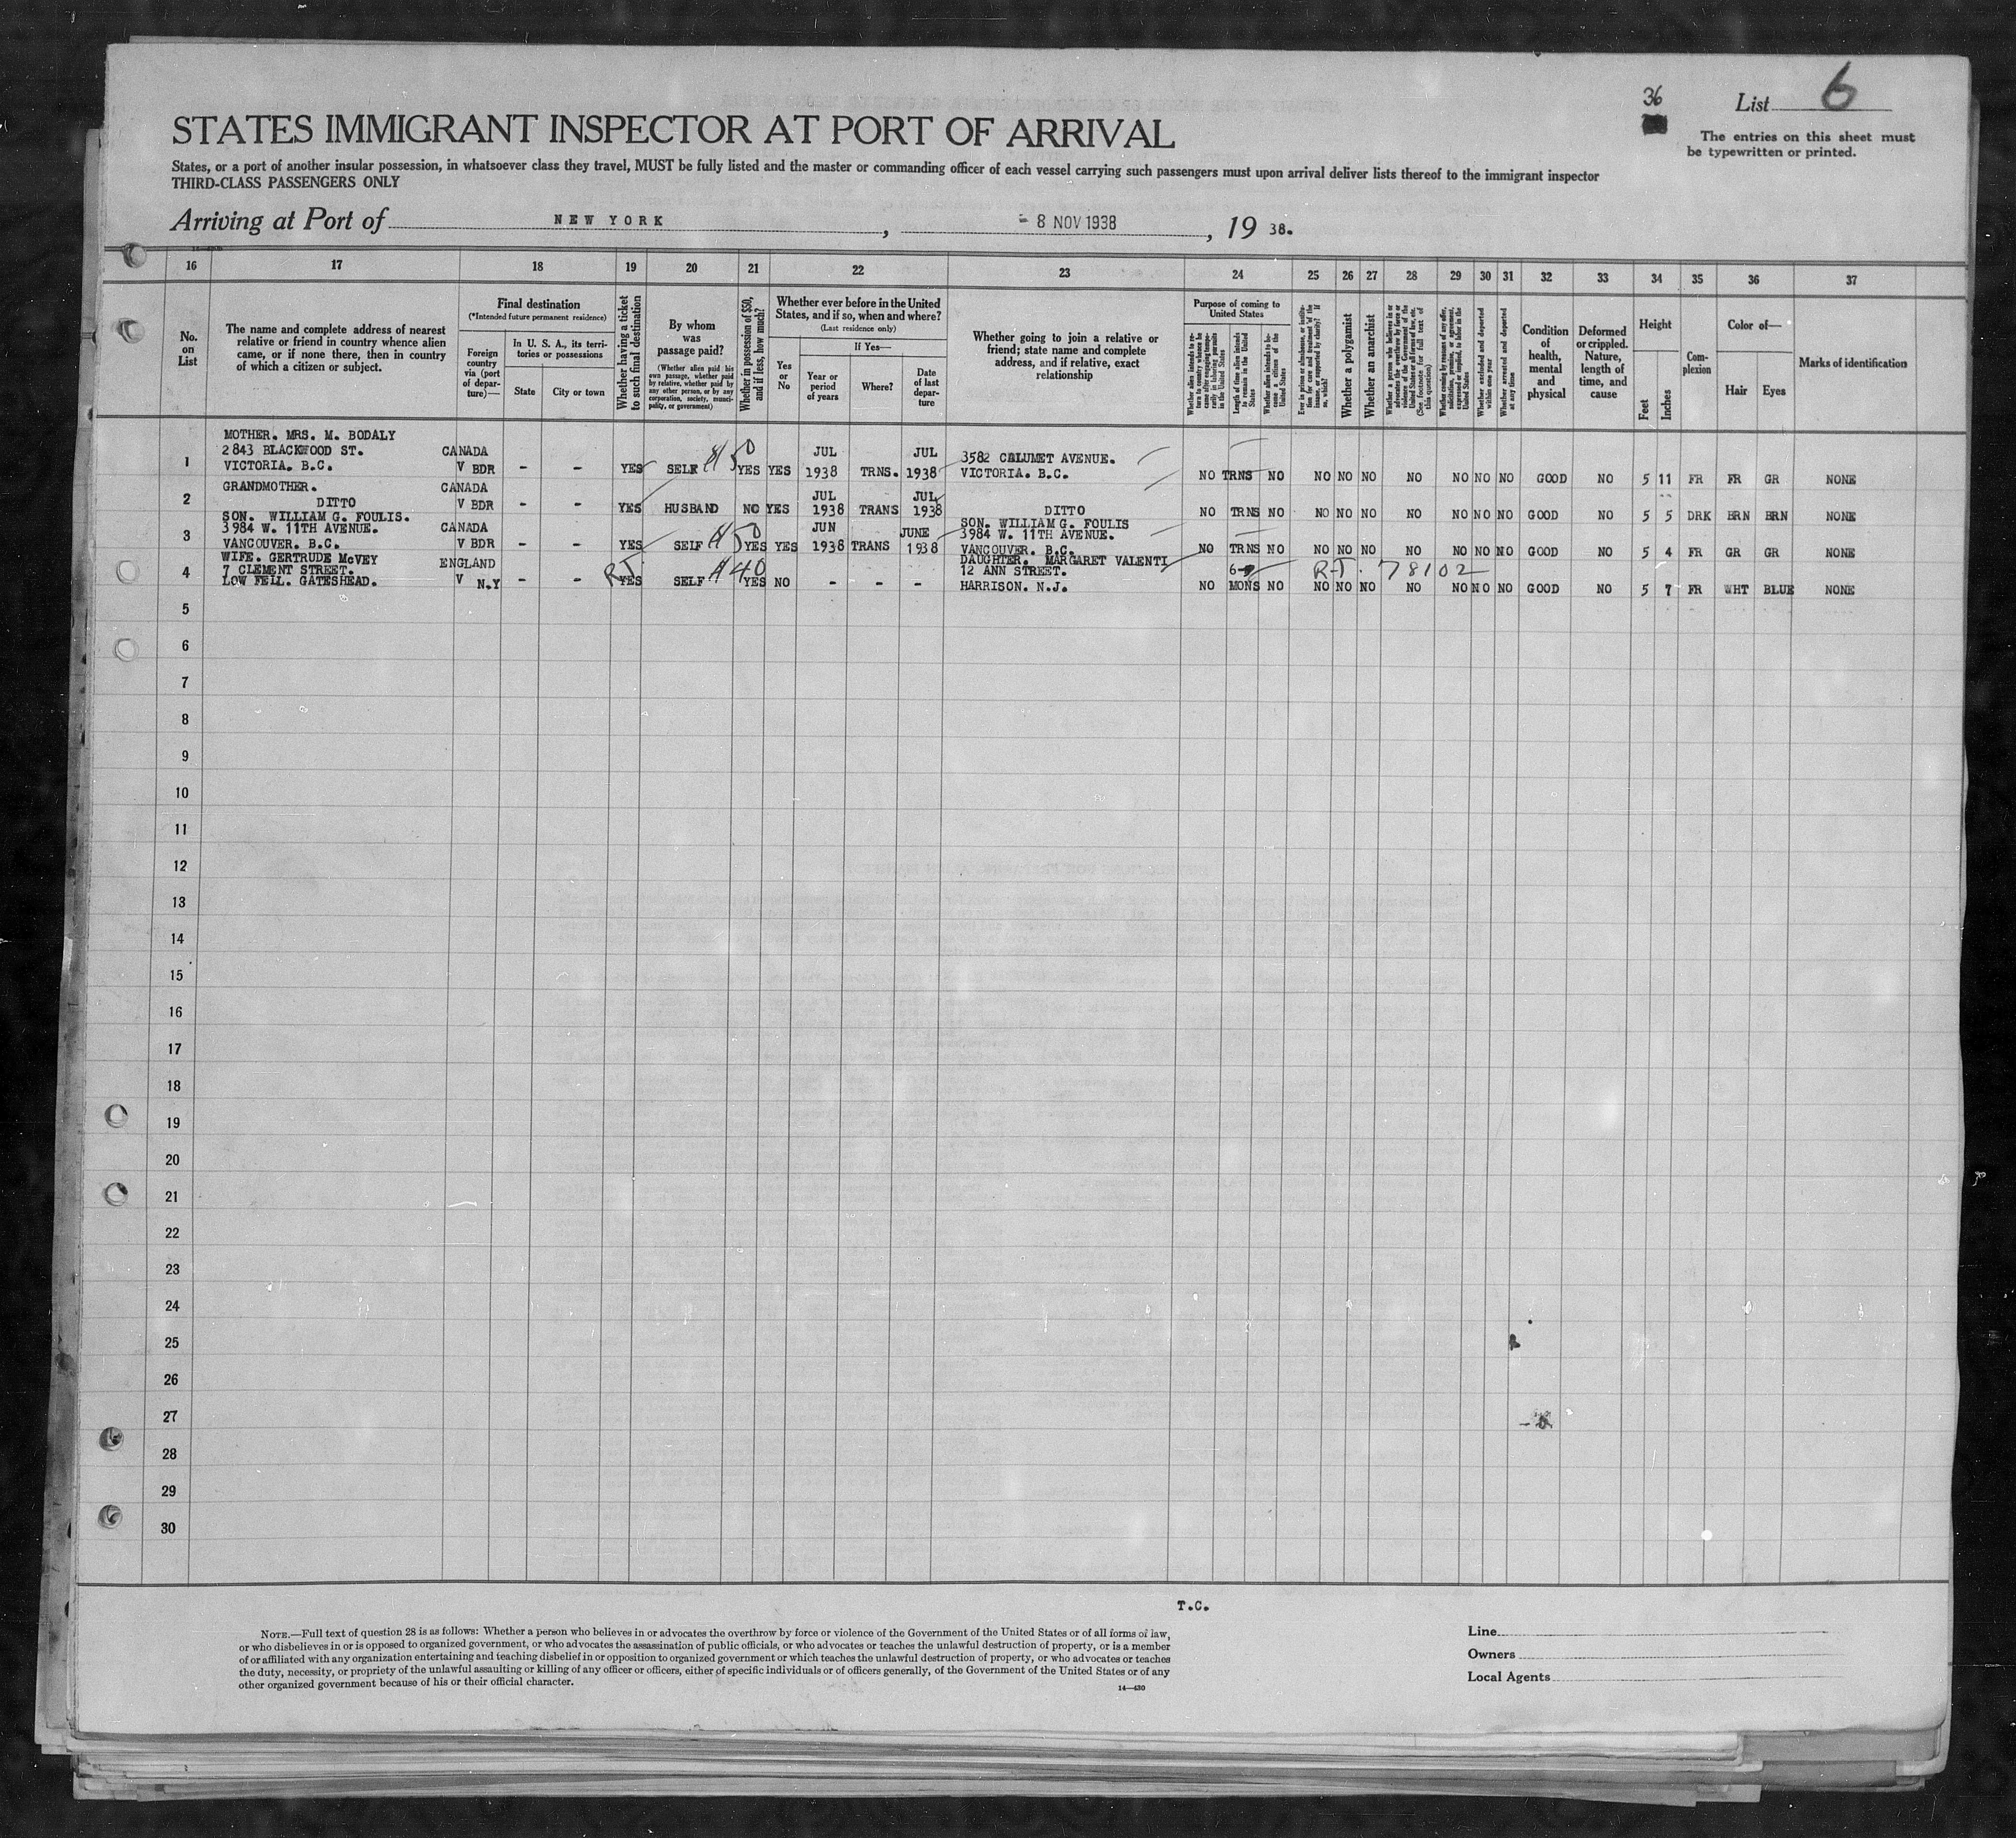 36
List 6
The entries on this sheet must
be typewritten or printed.
STATES IMMIGRANT INSPECTOR AT PORT OF ARRIVAL
States, or a port of another insular possession, in whatsoever class they travel, MUST be fully listed and the master or commanding officer of each vessel carrying such passengers must upon arrival deliver lists thereof to the immigrant inspector
THIRD-CLASS PASSENGERS ONLY
Arriving at Port of NEW YORK, - 8 NOV 1938, 19 38.
16 17 18 19 20 21 22 23 24 25 26 27 28 29 30 31 32 33 34 35 36 37
No.
on
List
The name and complete address of nearest
relative or friend in country whence alien
came, or if none there, then in country
of which a citizen or subject.
Final destination
(*Intended future permanent residence)
Foreign
country
via (port
of depar-
ture)—
In U. S. A., its terri-
tories or possessions
State
City or town
Whether having a ticket
to such final destination
By whom
was
passage paid?
(Whether alien paid his
own passage, whether paid
by relative, whether paid by
any other person, or by any
corporation, society, munici-
pality, or government)
Whether in possession of $50,
and if less, how much?
Whether ever before in the United
States, and if so, when and where?
(Last residence only)
Yes
or
No
If Yes—
Year or
period
of years
Where?
Date
of last
depar-
ture
Whether going to join a relative or
friend; state name and complete
address, and if relative, exact
relationship
Purpose of coming to
United States
Whether alien intends to re-
turn to country whence he
came after engaging tempo-
rarily in laboring pursuits
in the United States
Length of time alien intends
to remain in the United
States
Whether alien intends to be-
come a citizen of the
United States
Ever in prison or almshouse, or institu-
tion for care and treatment of the
insane, or supported by charity? If
so, which?
Whether a polygamist
Whether an anarchist
Whether a person who believes in or
advocates the overthrow by force or
violence of the Government of the
United States or all forms of law, etc.
(See footnote for full text of
this question)
Whether coming by reason of any offer,
solicitation, promise, or agreement,
expressed or implied, to labor in the
United States
Whether excluded and deported
within one year
Whether arrested and deported
at any time
Condition
of
health,
mental
and
physical
Deformed
or crippled.
Nature,
length of
time, and
cause
Height
Feet
Inches
Com-
plexion
Color of—
Hair
Eyes
Marks of identification
MOTHER. MRS. M. BODALY
2843 BLACKWOOD ST. CANADA JUL JUL 3582 CALUMET AVENUE.
1 VICTORIA. B.C. V BDR - - YES SELF $50 YES YES 1938 TRNS. 1938 VICTORIA. B.C. NO TRNS NO NO NO NO NO NO NO NO GOOD NO 5 11 FR FR GR NONE
GRANDMOTHER. CANADA JUL JUL
2 DITTO V BDR - - YES HUSBAND NO YES 1938 TRANS 1938 DITTO NO TRNS NO NO NO NO NO NO NO NO GOOD NO 5 5 DRK BRN BRN NONE
SON. WILLIAM G. FOULIS. SON. WILLIAM G. FOULIS
3984 W. 11TH AVENUE. CANADA JUN JUNE 3984 W. 11TH AVENUE.
3 VANCOUVER. B.C. V BDR - - YES SELF $50 YES YES 1938 TRANS 1938 VANCOUVER. B.C. NO TRNS NO NO NO NO NO NO NO NO GOOD NO 5 4 FR GR GR NONE
WIFE. GERTRUDE McVEY ENGLAND DAUGHTER. MARGARET VALENTI
7 CLEMENT STREET. R.T. $40 12 ANN STREET. 6 R.T. 78102
4 LOW FELL. GATESHEAD. V N.Y - - YES SELF YES NO - - - HARRISON. N.J. NO MONS NO NO NO NO NO NO NO NO GOOD NO 5 7 FR WHT BLUE NONE
5
6
7
8
9
10
11
12
13
14
15
16
17
18
19
20
21
22
23
24
25
26
27
28
29
30
T.C.
NOTE.—Full text of question 28 is as follows: Whether a person who believes in or advocates the overthrow by force or violence of the Government of the United States or of all forms of law,
or who disbelieves in or is opposed to organized government, or who advocates the assassination of public officials, or who advocates or teaches the unlawful destruction of property, or is a member
of or affiliated with any organization entertaining and teaching disbelief in or opposition to organized government or which teaches the unlawful destruction of property, or who advocates or teaches
the duty, necessity, or propriety of the unlawful assaulting or killing of any officer or officers, either of specific individuals or of officers generally, of the Government of the United States or of any
other organized government because of his or their official character.
14—430
Line
Owners
Local Agents